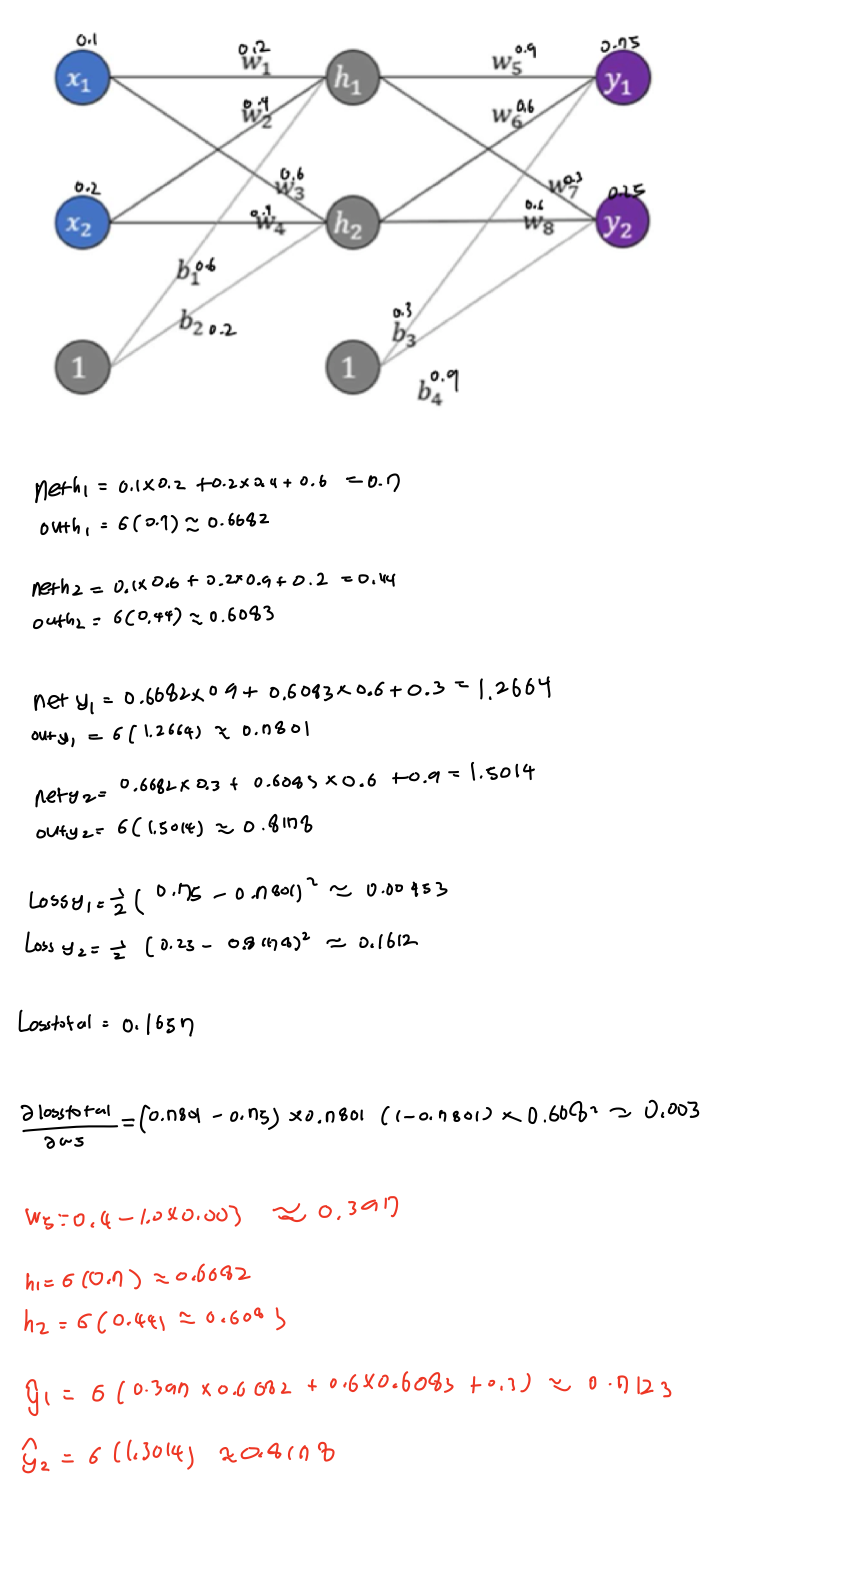 0.1 0.2 0.9 0.75
x₁ w₁ h₁ w₅ y₁
0.4 0.6
w₂ w₆
0.2 0.6 0.3 0.25
w₃ w₇
x₂ w₄ h₂ 0.6 w₈ y₂
b₁ 0.6
b₂ 0.2 0.3 b₃
1 1
b₄ 0.9
neth₁ = 0.1×0.2 + 0.2×0.4 + 0.6 = 0.7
outh₁ = σ(0.7) ≈ 0.6682
neth₂ = 0.1×0.6 + 0.2×0.9 + 0.2 = 0.44
outh₂ = σ(0.44) ≈ 0.6083
net y₁ = 0.6682×0.9 + 0.6083×0.6 + 0.3 = 1.2664
out y₁ = σ(1.2664) ≈ 0.7801
net y₂ = 0.6682×0.3 + 0.6083×0.6 + 0.9 = 1.5014
out y₂ = σ(1.5014) ≈ 0.8178
Loss y₁ = ½(0.75 − 0.7801)² ≈ 0.00453
Loss y₂ = ½(0.25 − 0.8178)² ≈ 0.1612
Losstotal = 0.1657
∂losstotal/∂w5 = (0.7801 − 0.75) × 0.7801 (1−0.7801) × 0.6682 ≈ 0.003
w₅ = 0.4 − 1.0×0.003 ≈ 0.397
h₁ = σ(0.7) ≈ 0.6682
h₂ = σ(0.44) ≈ 0.6083
ŷ₁ = σ(0.397×0.6682 + 0.6×0.6083 + 0.3) ≈ 0.7123
ŷ₂ = σ(1.5014) ≈ 0.8178